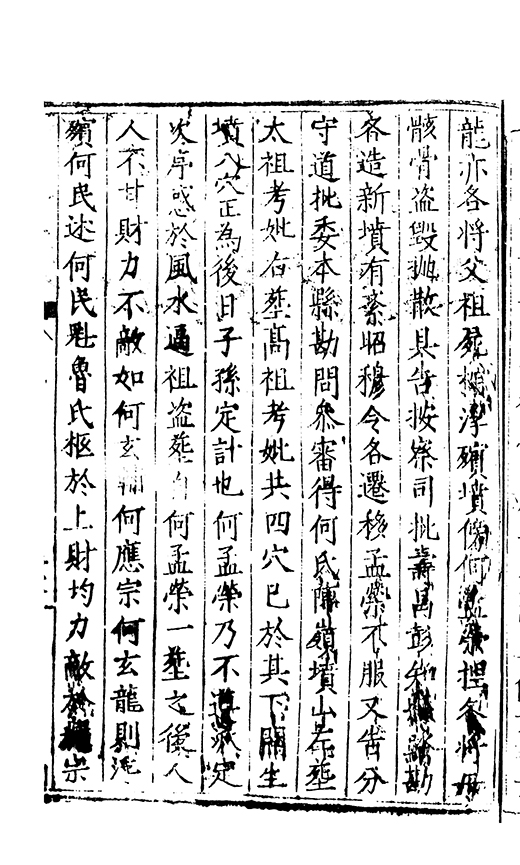 龍亦各將父祖屍柩浮殯墳傍何孟榮捏各將母
骸骨盜毀拋散具告按察司批壽昌彭知縣勘
各造新墳有紊昭穆令各遷移孟榮不服又告分
守道批委本縣勘問參審得何氏陳嶺墳山左塟
太祖考妣右塟高祖考妣共四穴已於其下開生
墳八穴正為後日子孫定計也何孟榮乃不遵派定
次序惑於風水逼祖盜塟自何孟榮一塟之後人
人不甘財力不敵如何玄輔何應宗何玄龍則浮
殯何民述何民魁魯氏柩於上財均力敵於宗